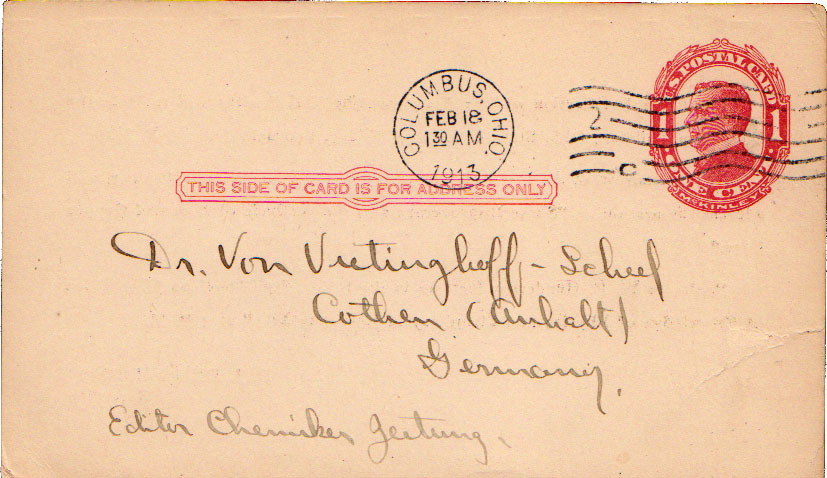 U.S. POSTAL CARD
1 1
ONE CENT
McKINLEY
COLUMBUS, OHIO.
FEB 18
1 30 AM
1913
2
C
THIS SIDE OF CARD IS FOR ADDRESS ONLY
Dr. Von Vietinghoff-Scheel
Cothen (Anhalt)
Germany.
Editor Chemiker Zeitung.